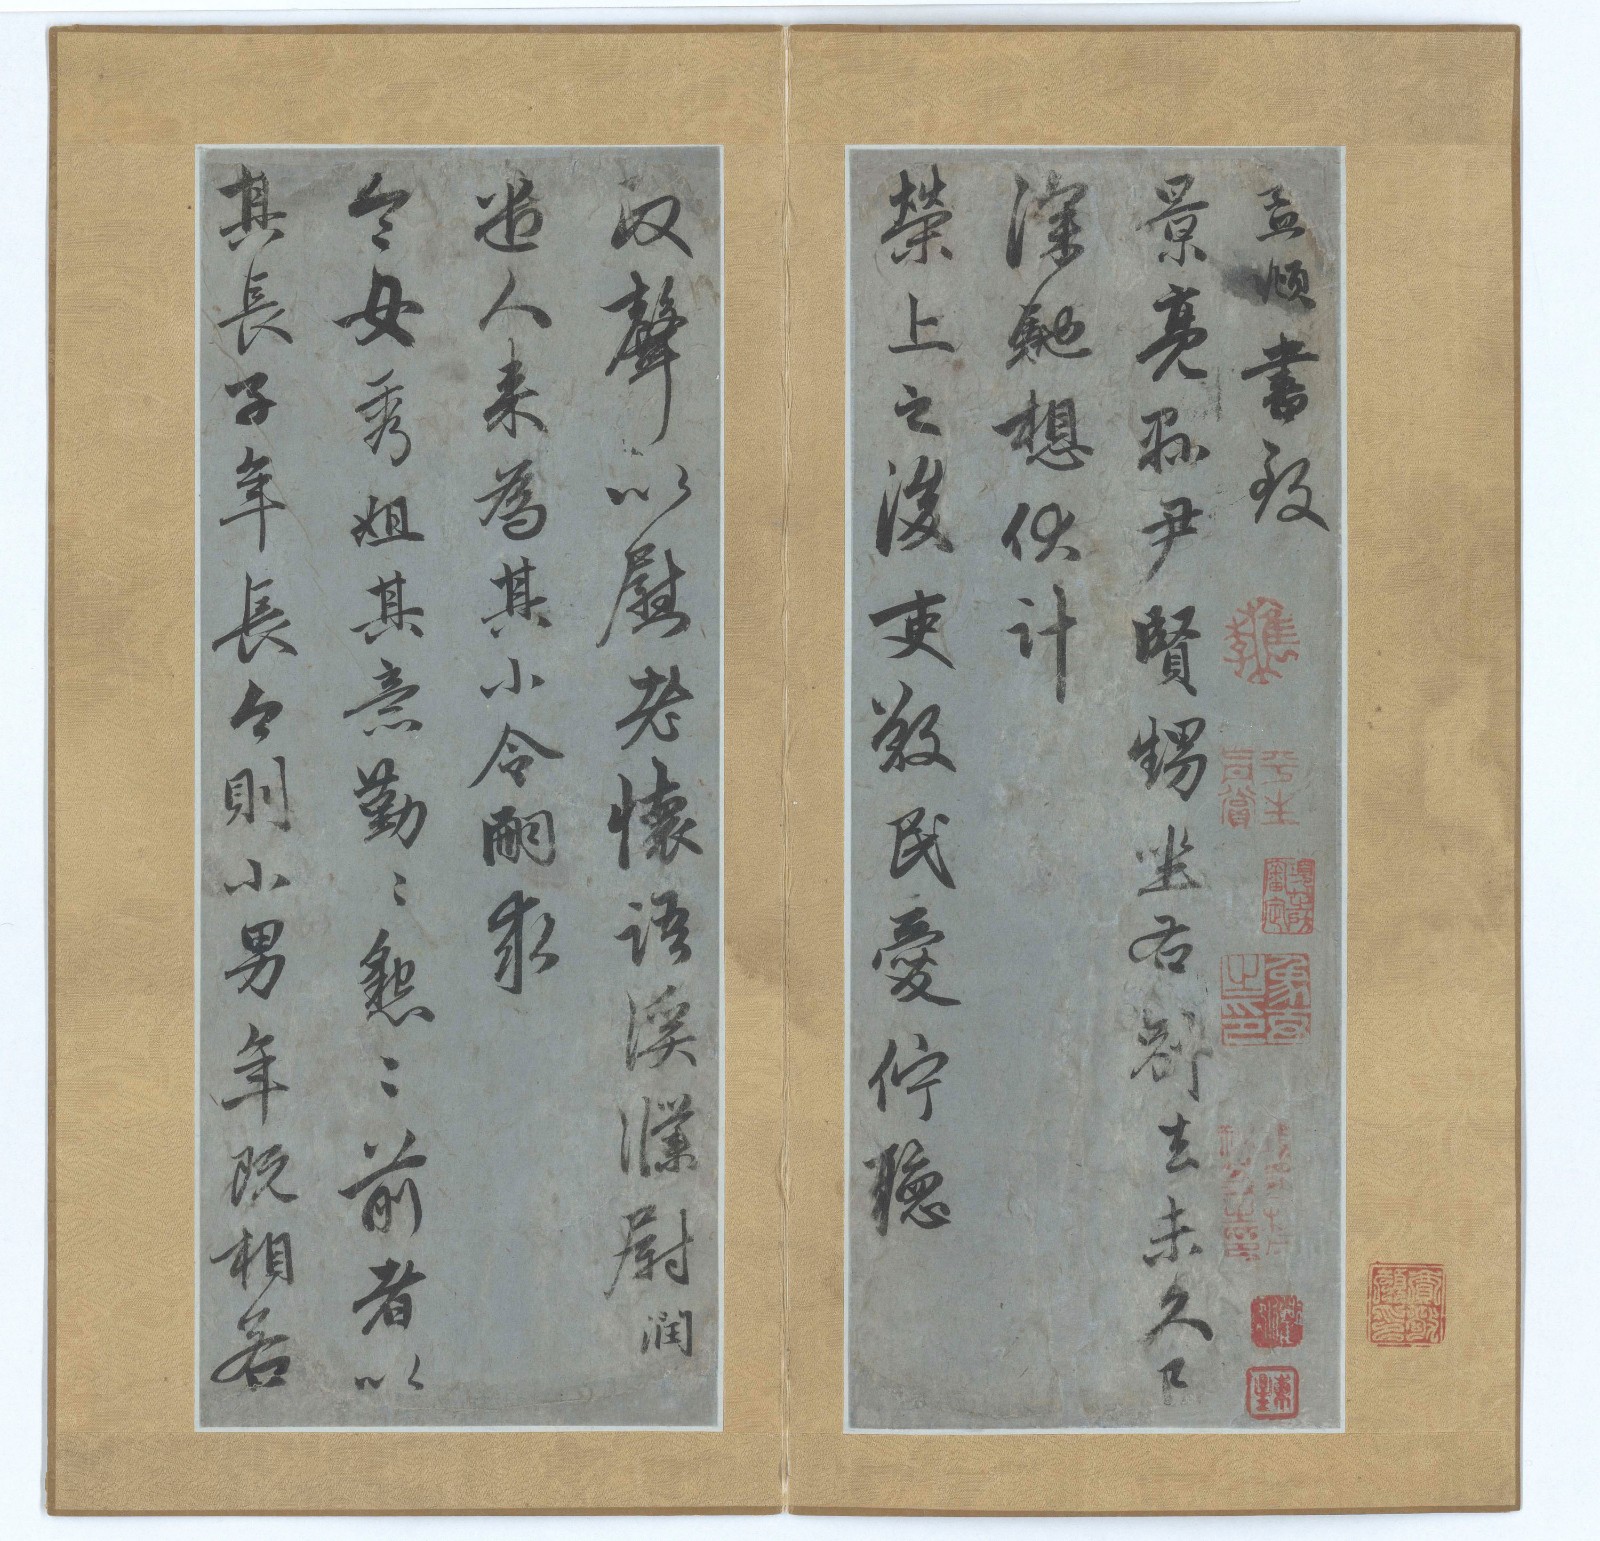 孟頫書致
景亮縣尹賢甥坐右別去未久已
深馳想伏計
榮上之後吏敬民愛佇聽
政聲以慰老懷語溪濮尉潤
遣人來為其小令嗣求
令女秀姐其意勤〻懇〻前者以
其長子年長今則小男年既相若